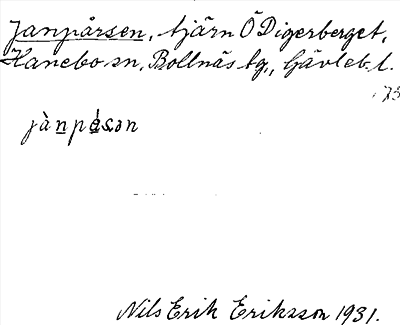 Janpårsen, tjärn Ö Digerberget,
Hanebo sn, Bollnäs tg., Gävleb. l.
73
jànpá̀sɔn
Nils Erik Eriksson 1931.